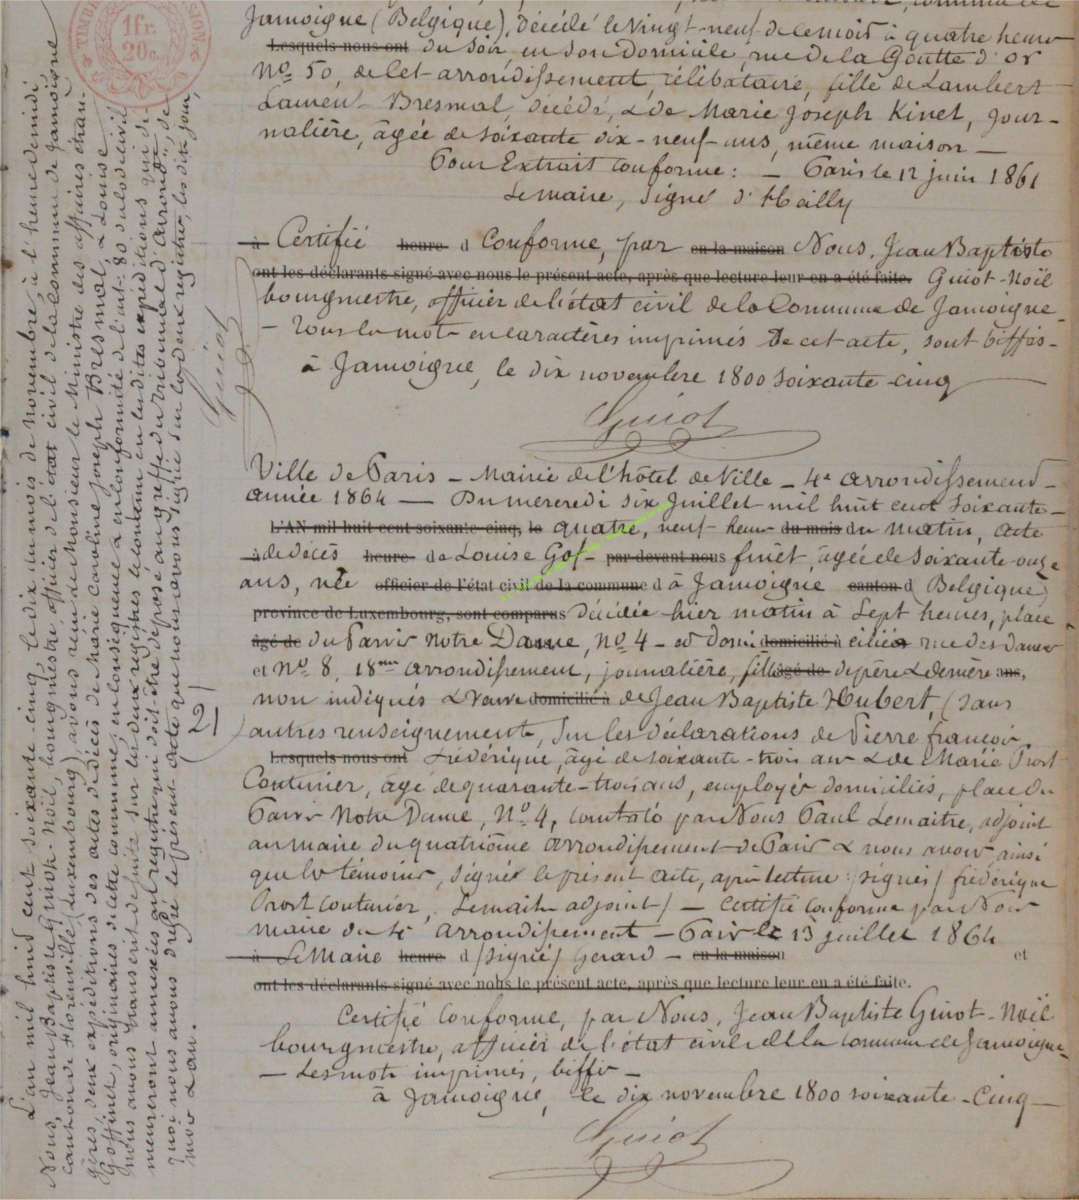 Jamoigne (Belgique), décédé le vingt-neuf de ce mois à quatre heures
Lesquels nous ont du soir en son domicile, rue de la Goutte d'or
No. 50, de cet arrondissement, célibataire, fille de Lambert
Laurent Bresmal, décédé, & de Marie Joseph Kinet, jour-
nalière, âgée de soixante dix-neuf ans, même maison —
Pour Extrait conforme: — Paris le 12 juin 1861
Le maire, signé d'
à Certifié heure d Conforme, par en la maison Nous, Jean Baptiste
ont les déclarants signé avec nous le présent acte, après que lecture leur en a été faite. Guiot-Noël
bourgmestre, officier de l'état civil de la Commune de Jamoigne
— Tous les mots en caractères imprimés de cet acte, sont biffés —
à Jamoigne, le dix novembre 1800 soixante-cinq
Guiot
Ville de Paris — Mairie de l'hôtel de Ville — 4e arrondissement —
année 1864 — Du mercredi six Juillet mil huit cent soixante-
L'AN mil huit cent soixante-cinq, le quatre, neuf heures du mois du matin, acte
à de décès heure de Louise Gof- par-devant nous finet, âgée de soixante-onze
ans, née officier de l'état civil de la commune d à Jamoigne canton d (Belgique)
province de Luxembourg, sont comparus décédée hier matin à sept heures, place
âgé de du Parvis Notre Dame, No. 4 — et domi domicilié à ciliée rue des
et No. 8, 18me arrondissement, journalière, fille âgé de de père & de mère ans,
non indiqués & veuve domicilié à de Jean Baptiste Hubert, (sans
autres renseignements, sur les déclarations de Pierre françois
Lesquels nous ont Frédérique, âgé de soixante-trois ans & de Marie Prost
Couturier, âgé de quarante-trois ans, employés domiciliés, place du
Parvis Notre Dame, No. 4, constaté par Nous Paul Lemaitre, adjoint
au maire du quatrième arrondissement de Paris & nous avons, ainsi
que les témoins, signé le présent acte, après lecture: (signés) frédérique
Prost Couturier, Lemaitre adjoint) — Certifié conforme par Nous
maire du 4e arrondissement — Paris le 13 juillet 1864
à Le Maire heure d (signé) Gerard — en la maison et
ont les déclarants signé avec nous le présent acte, après que lecture leur en a été faite.
Certifié Conforme, par Nous, Jean Baptiste Guiot-Noël
bourgmestre, officier de l'état civil de la commune de Jamoigne
— Les mots imprimés, biffés —
à Jamoigne, le dix novembre 1800 soixante-cinq —
Guiot
TIMBRE
1fr.
20c.
L'an mil huit cent soixante-cinq, le dix du mois de novembre, à l'heure de midi,
Nous, Jean Baptiste Guiot-Noël, bourgmestre, officier de l'état civil de la commune de Jamoigne
canton de Florenville (Luxembourg), avons reçu de Monsieur le Ministre des affaires étran-
gères, deux expéditions des actes de décès de Marie Caroline Joseph Bresmal, & Louise
Goffinet, originaires de cette commune; en conséquence & en conformité de l'art. 80 du code civil
nous avons transcrit de suite sur les deux registres le contenu en lesdites expéditions qui de-
meureront annexées au registre qui doit être déposé au greffe du tribunal d'arrondt., de
quoi nous avons dressé le présent acte que nous avons signé sur les deux registres, les dits jour,
mois & an.
Guiot
21